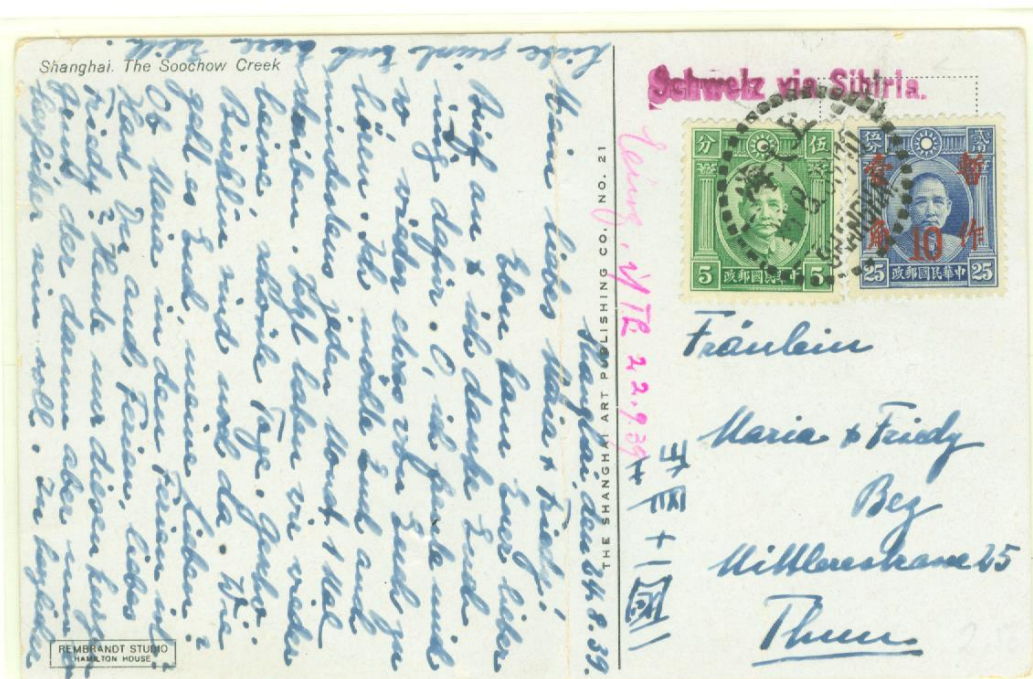 Shanghai. The Soochow Creek
Shanghai, den 24.8.39.
Mein liebes Maria & Friedy!
Eben kam Euer lieber
Brief an & ich danke Euch
innig dafür. O, ich freute mich
so wieder etwas von Euch zu
hören. Ich wollte Euch auch
mindestens jeden Monat 1 Mal
schreiben. Jetzt haben wir wieder
schöne Tage.
sind noch da. Wie
geht es Euch, meine Lieben?
Ob Maria in den Ferien ist?
Hast Du auch Ferien, liebes
Friedy? Heute nur diesen kurzen
Gruss, der darum aber
herzlicher sein soll. In herzlicher
Liebe grüsst Euch Eure Edith.
REMBRANDT STUDIO
HAMILTON HOUSE
THE SHANGHAI ART PUBLISHING CO. NO. 21
Schweiz via Sibiria.
22.9.39
分 伍
5 政郵國民華中 5
SHANGHAI
分伍
暫作
壹角
10
25 政郵國民華中 25
Fräulein
Maria & Friedy
Bez
Mittlerestrasse 25
Thun